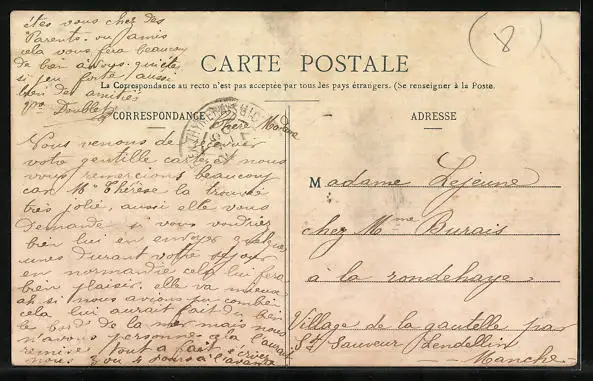 êtes vous chez des
Parents. ou amis
cela vous fera beaucoup
de bien à vous. qui êtes
si peu forte, aussi
bien des amitiés
Doublet
8
CARTE POSTALE
La Correspondance au recto n'est pas acceptée par tous les pays étrangers. (Se renseigner à la Poste.
CORRESPONDANCE
ADRESSE
Chère Madame
Nous venons de recevoir
votre gentille carte, et nous
vous remercions beaucoup
car Mlle Thérèse la trouve
très jolie, aussi elle vous
demande si vous voudriez
bien lui en envoyer quelques
unes durant votre séjour
en normandie cela lui fera
bien plaisir. elle va mieux
ah si nous avions pu combien
cela lui aurait fait du bien
le bord de la mer mais nous
n'avons personnes à la
remise tout à fait écrivez
nous 3 ou 4 jours à l'avance
Madame Lejeune
chez Mme Burais
à la rondehaye
Village de la gautelle par
St Sauveur Lendellin
- Manche -